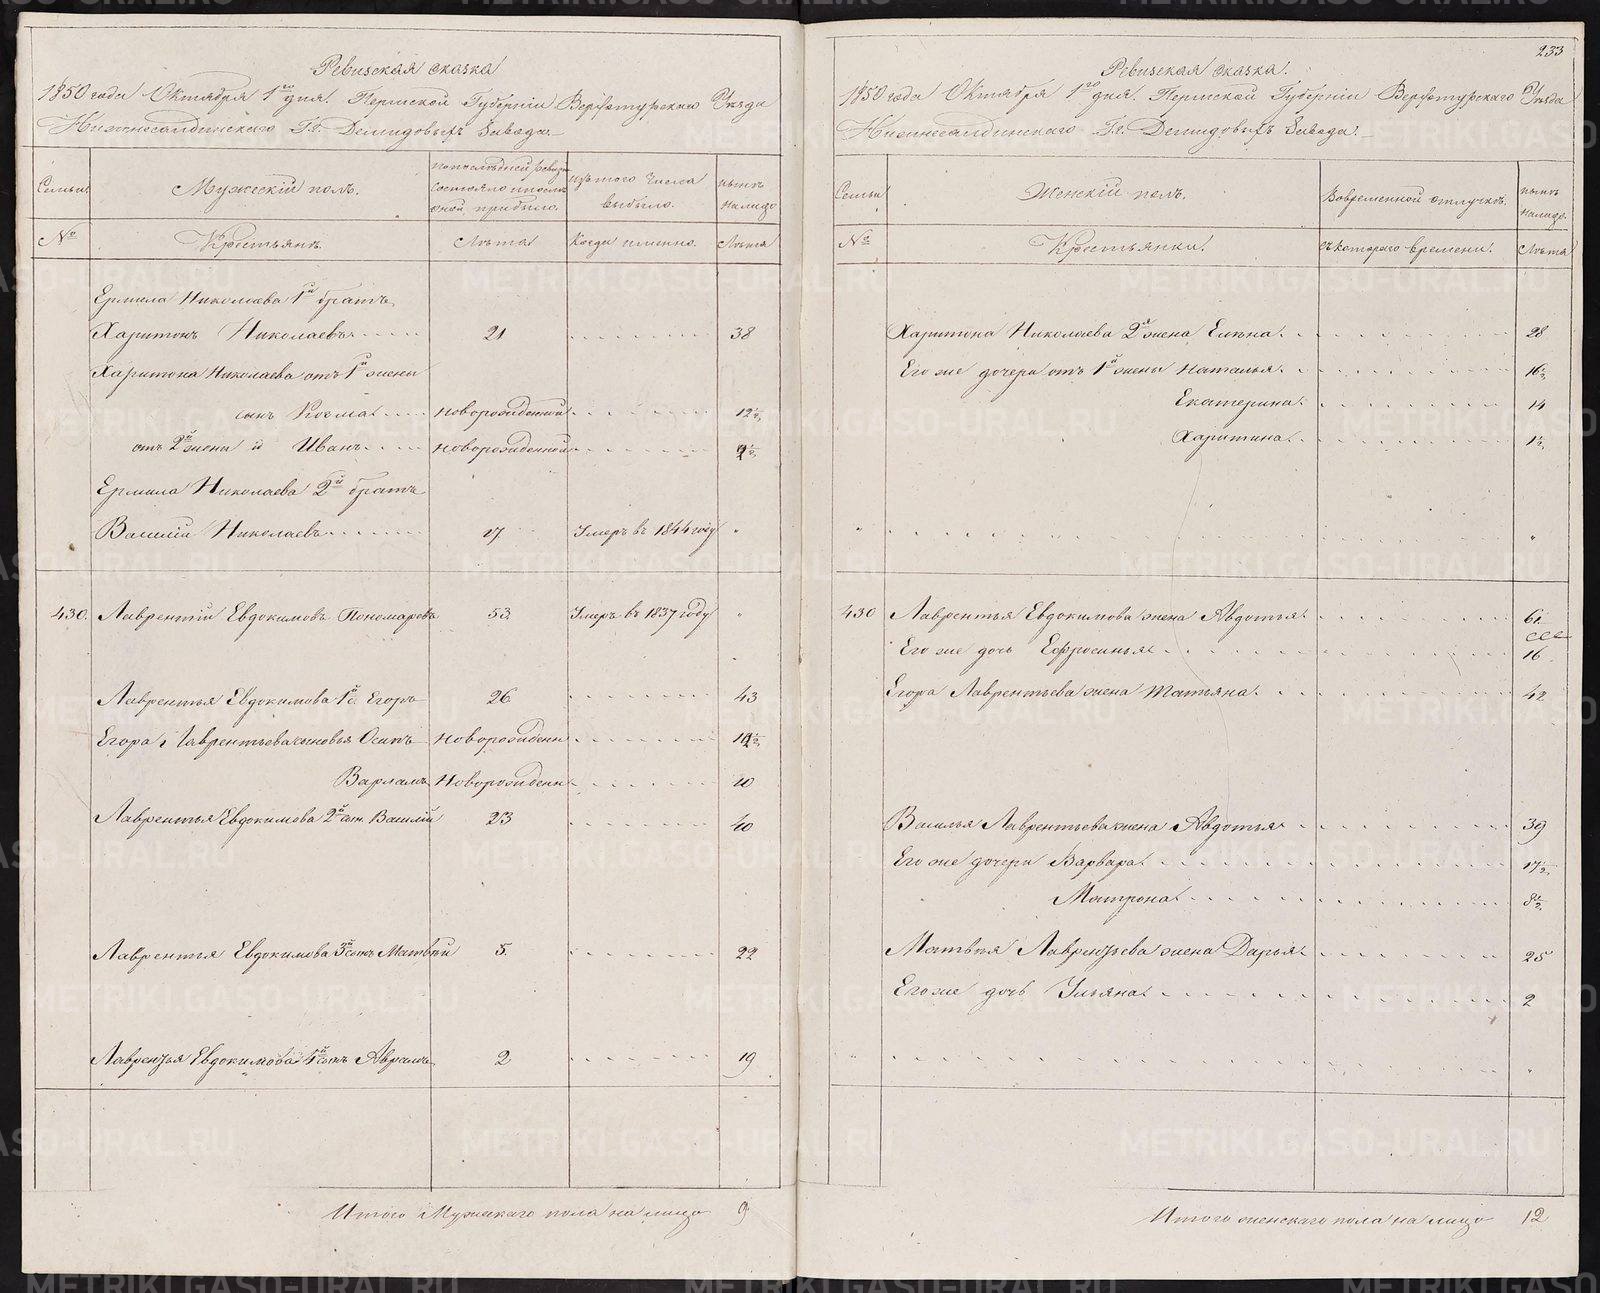 Ревизская сказка
1850 года Октября 1го дня. Пермской Губерніи Верхотурскаго Уѣзда
Нижнесалдинскаго Г.г. Демидовыхъ Завода.
Семьи
Мужескій полъ.
по послѣдней ревизіи состояло и послѣ оной прибыло.
изъ того числа выбыло.
нынѣ на лицо
№
Крестьянъ.
Лѣта
Когда именно.
Лѣта
Ермила Николаева 1й братъ
Харитонъ Николаевъ 21 38
Харитона Николаева отъ 1й жены
сынъ Козма новорожденной 12½
отъ 2й жены й Иванъ новорожденной 2½
Ермила Николаева 2й братъ
Василій Николаевъ 17 Умеръ въ 1844 году "
430. Лаврентій Евдокимовъ Пономаревъ 53. Умеръ въ 1837 году "
Лаврентья Евдокимова 1й с. Егоръ 26 43
Егора Лаврентьева сыновья Осипъ Новорожден
Варламъ Новорожден 10
Лаврентья Евдокимова 2й сын. Василій 23 40
Лаврентья Евдокимова 3й сынъ Матвѣй 5. 22
Лаврентья Евдокимова 4й сынъ Аврамъ 2 19
Итого Мужескаго пола на лицо 9
233
Ревизская сказка.
1850 года Октября 1го дня. Пермской Губерніи Верхотурскаго Уѣзда
Нижнесалдинскаго Г.г. Демидовыхъ Завода.
Семьи
Женскій полъ.
Во временной отлучкѣ.
нынѣ на лицо.
№
Крестьянки.
съ котораго времени.
Лѣта
Харитона Николаева 2я жена Елѣна 28
Его же дочери отъ 1й жены Наталья 16½
Екатерина 14
Харитина 1½
" "
430 Лаврентья Евдокимова жена Авдотья 61
Его же дочь Ефросинья 16
Егора Лаврентьева жена Татьяна 42
Василья Лаврентьева жена Авдотья 39
Его же дочери Варвара 17½
Матрона 8½
Матвѣя Лаврентьева жена Дарья 25
Его же дочь Ульяна 2
" "
Итого женскаго пола на лицо 12
METRIKI.GASO-URAL.RU